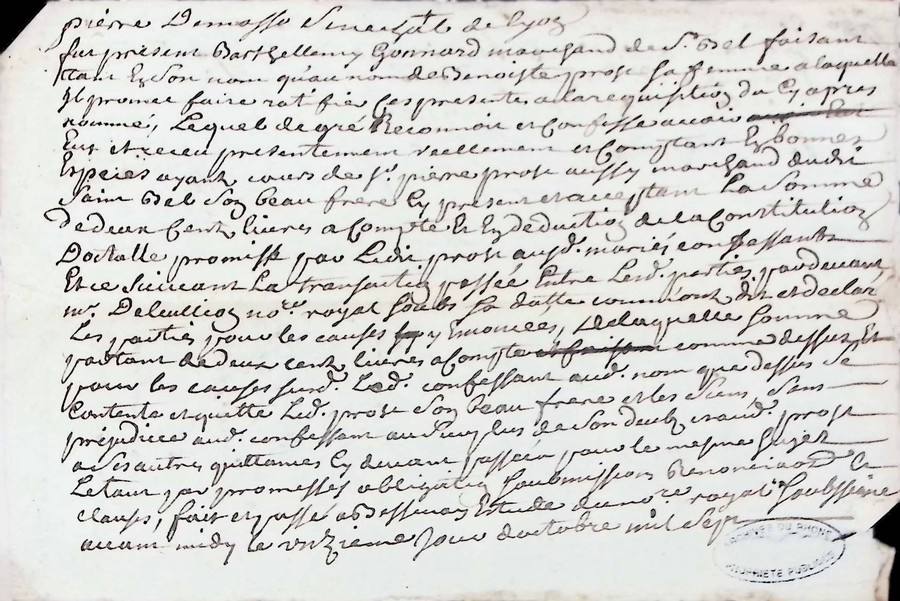 pierre Demasso Senechal de Lyon
fut présent Barthellemy Gonnard marchand de St. Bel faisant
tant En Son nom qu'au nom de Benoiste prost sa femme a laquelle
Il promet faire ratifie Ces presente a la requisition du Cy apres
nommé, Lequel de gré Reconnoit et Confesse avoir
Eus et receu presentement reellement et Comptant En bonnes
Espèces ayant cours de Sr. pierre prost aussy marchand dudit
Saint Bel Son beau frere Cy present et acceptant La Somme
de deux Cent livres a Compte Et En deduction de la Constitution
Doctalle promisse par Ledit prost aud. mariés confessants
Et ce Suivant La transaction passée Entre Lesd. parties pardevant
me. notre. royal Soubs Sa datte comme ont dit et declaré
Les parties pour les causes y Enoncées, De laquelle Somme
partant de deux cent livres a Compte comme dessus Et
pour les causes susd. Led. confessant aud. nom que dessus Se
Contente et quitte Led. prost Son beau frere et les Siens, Sans
préjudice aud. confessant au Surplus de Son deub, et aud. prost
a Ses autres quittances Cy devant passées pour le mesme Sujet
Le tout par promesses obligation Soubmission Renonciaons et
clauses, fait et passé a Bessenay Estude du nore. royal Soubssigné
avant midy le unzieme Jour d'octobre mil Sept
ARCHIVES DU RHONE
PROPRIETE PUBLIQUE